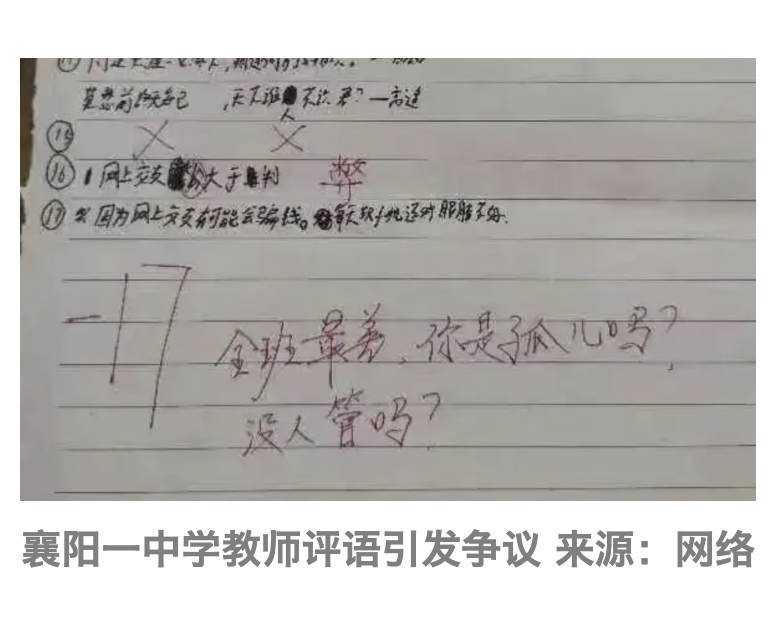 莫愁前路无知己,天下谁人不识君?—高适
⑮
⑯ 网上交友 大于判 弊
⑰ 因为网上交友有可能会骗钱。每天玩手机还对眼睛不好.
-17
全班最差、你是孤儿吗?
没人管吗?
襄阳一中学教师评语引发争议 来源:网络